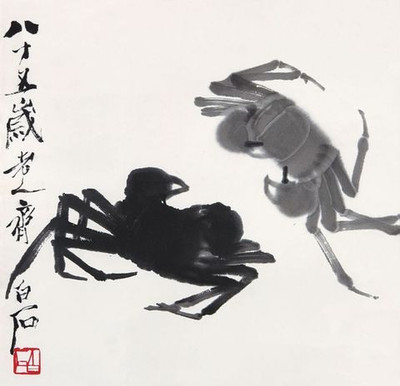 八十五歲老人齊白石